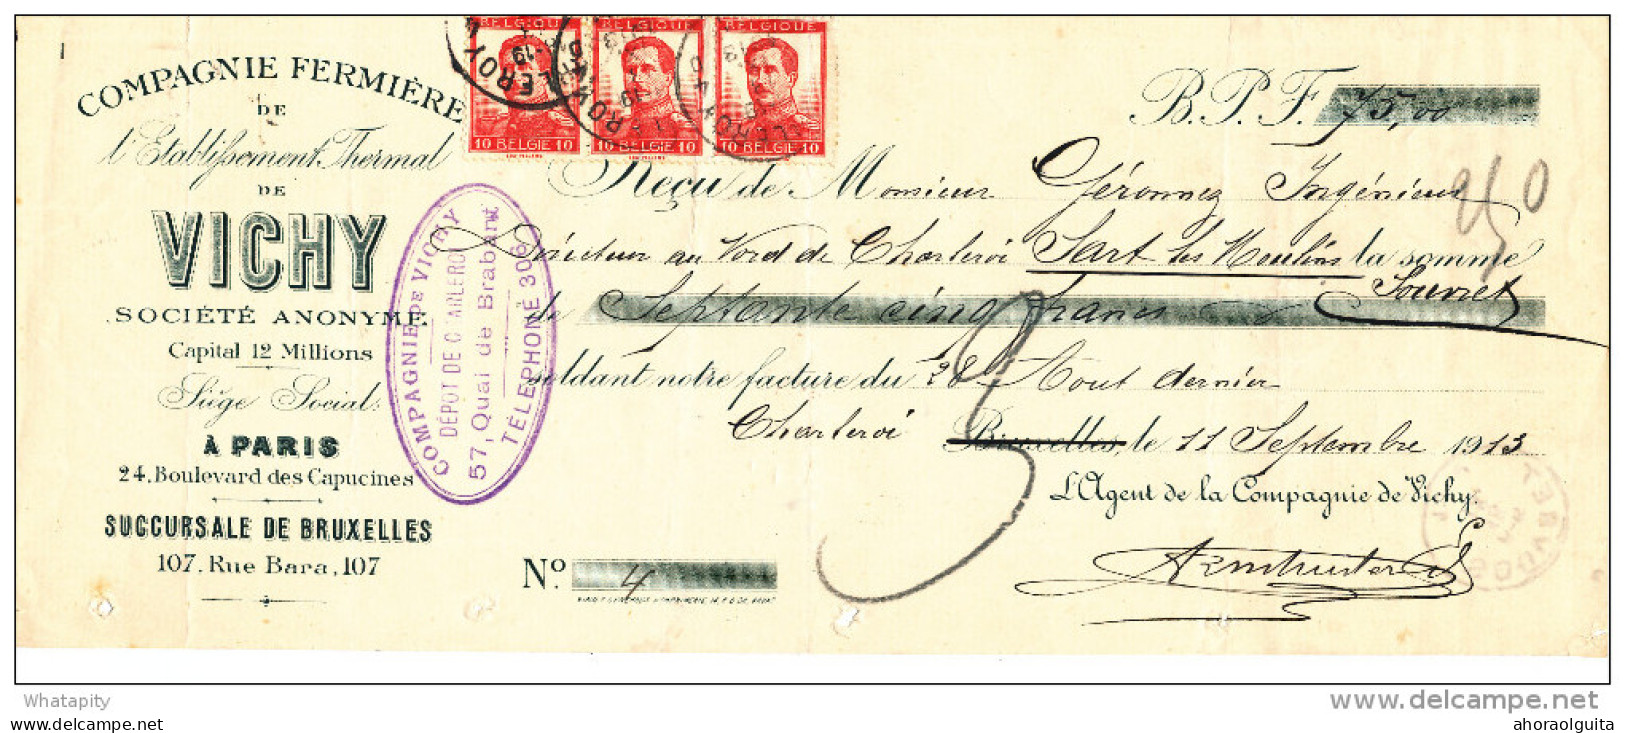 COMPAGNIE FERMIÈRE
DE
l'Etablissement Thermal
DE
VICHY
SOCIÉTÉ ANONYME
Capital 12 Millions
Siège Social:
À PARIS
24, Boulevard des Capucines
SUCCURSALE DE BRUXELLES
107, Rue Bara, 107
BELGIQUE
10 BELGIE 10
BELGIQUE
10 BELGIE 10
BELGIQUE
10 BELGIE 10
COMPAGNIE DE VICHY
DÉPOT DE CHARLEROI
57, Quai de Brabant
TÉLÉPHONE 306
B. P. F. 75,00
Reçu de Monsieur Géronnez Ingénieur
Directeur au Nord de Charleroi Sart les Moulins la somme
Souvret
de Septante cinq francs
soldant notre facture du 28 Aout dernier
Charleroi Bruxelles, le 11 Septembre 1913
L'Agent de la Compagnie de Vichy.
No. 4
Whatapity
www.delcampe.net
ahoraolguita